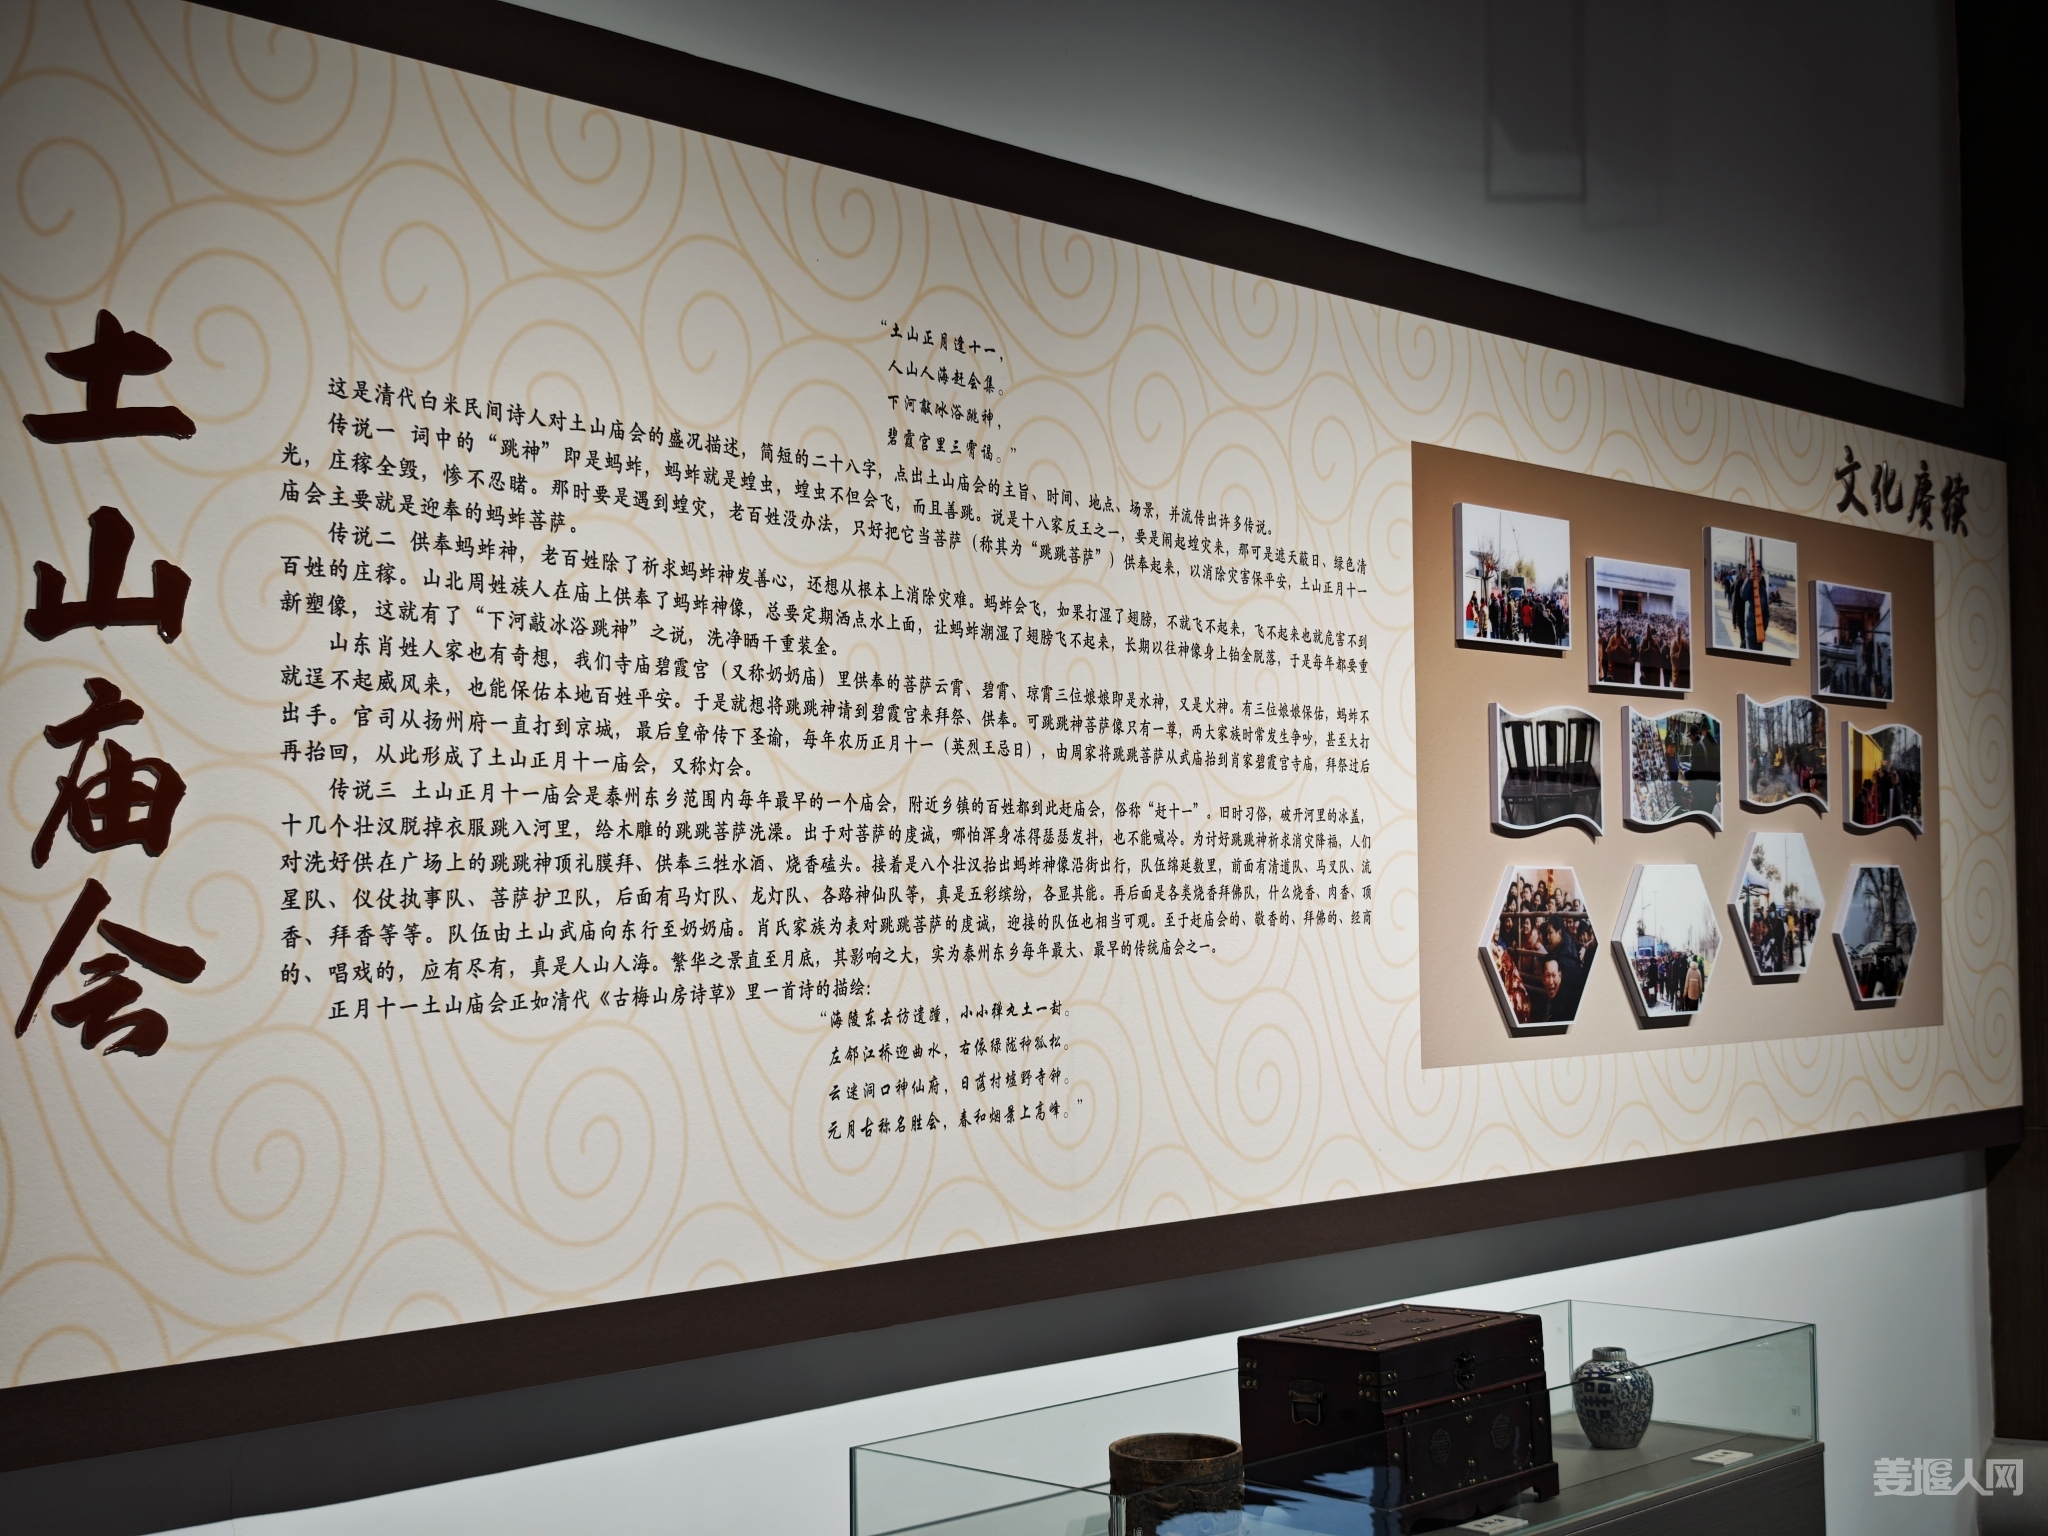 土山庙会
“土山正月逢十一，
人山人海赶会集。
下河敲冰浴跳神，
碧霞宫里三霄谒。”
这是清代白米民间诗人对土山庙会的盛况描述，简短的二十八字，点出土山庙会的主旨、时间、地点、场景，并流传出许多传说。
传说一 词中的“跳神”即是蚂蚱，蚂蚱就是蝗虫，蝗虫不但会飞，而且善跳。说是十八家反王之一，要是闹起蝗灾来，那可是遮天蔽日、绿色清
光，庄稼全毁，惨不忍睹。那时要是遇到蝗灾，老百姓没办法，只好把它当菩萨（称其为“跳跳菩萨”）供奉起来，以消除灾害保平安，土山正月十一
庙会主要就是迎奉的蚂蚱菩萨。
传说二 供奉蚂蚱神，老百姓除了祈求蚂蚱神发善心，还想从根本上消除灾难。蚂蚱会飞，如果打湿了翅膀，不就飞不起来，飞不起来也就危害不到
百姓的庄稼。山北周姓族人在庙上供奉了蚂蚱神像，总要定期洒点水上面，让蚂蚱潮湿了翅膀飞不起来，长期以往神像身上铂金脱落，于是每年都要重
新塑像，这就有了“下河敲冰浴跳神”之说，洗净晒干重装金。
山东肖姓人家也有奇想，我们寺庙碧霞宫（又称奶奶庙）里供奉的菩萨云霄、碧霄、琼霄三位娘娘即是水神，又是火神。有三位娘娘保佑，蚂蚱不
就逞不起威风来，也能保佑本地百姓平安。于是就想将跳跳神请到碧霞宫来拜祭、供奉。可跳跳神菩萨像只有一尊，两大家族时常发生争吵，甚至大打
出手。官司从扬州府一直打到京城，最后皇帝传下圣谕，每年农历正月十一（英烈王忌日），由周家将跳跳菩萨从武庙抬到肖家碧霞宫寺庙，拜祭过后
再抬回，从此形成了土山正月十一庙会，又称灯会。
传说三 土山正月十一庙会是泰州东乡范围内每年最早的一个庙会，附近乡镇的百姓都到此赶庙会，俗称“赶十一”。旧时习俗，破开河里的冰盖，
十几个壮汉脱掉衣服跳入河里，给木雕的跳跳菩萨洗澡。出于对菩萨的虔诚，哪怕浑身冻得瑟瑟发抖，也不能喊冷。为讨好跳跳神祈求消灾降福，人们
对洗好供在广场上的跳跳神顶礼膜拜、供奉三牲水酒、烧香磕头。接着是八个壮汉抬出蚂蚱神像沿街出行，队伍绵延数里，前面有清道队、马叉队、流
星队、仪仗执事队、菩萨护卫队，后面有马灯队、龙灯队、各路神仙队等，真是五彩缤纷，各显其能。再后面是各类烧香拜佛队，什么烧香、肉香、顶
香、拜香等等。队伍由土山武庙向东行至奶奶庙。肖氏家族为表对跳跳菩萨的虔诚，迎接的队伍也相当可观。至于赶庙会的、敬香的、拜佛的、经商
的、唱戏的，应有尽有，真是人山人海。繁华之景直至月底，其影响之大，实为泰州东乡每年最大、最早的传统庙会之一。
正月十一土山庙会正如清代《古梅山房诗草》里一首诗的描绘：
“海陵东去访遗踵，小小弹丸土一封。
左邻江桥迎曲水，右依绿陇种孤松。
云迷洞口神仙府，日落村墟野寺钟。
元月古称名胜会，春和烟景上高峰。”
文化赓续
姜堰人网